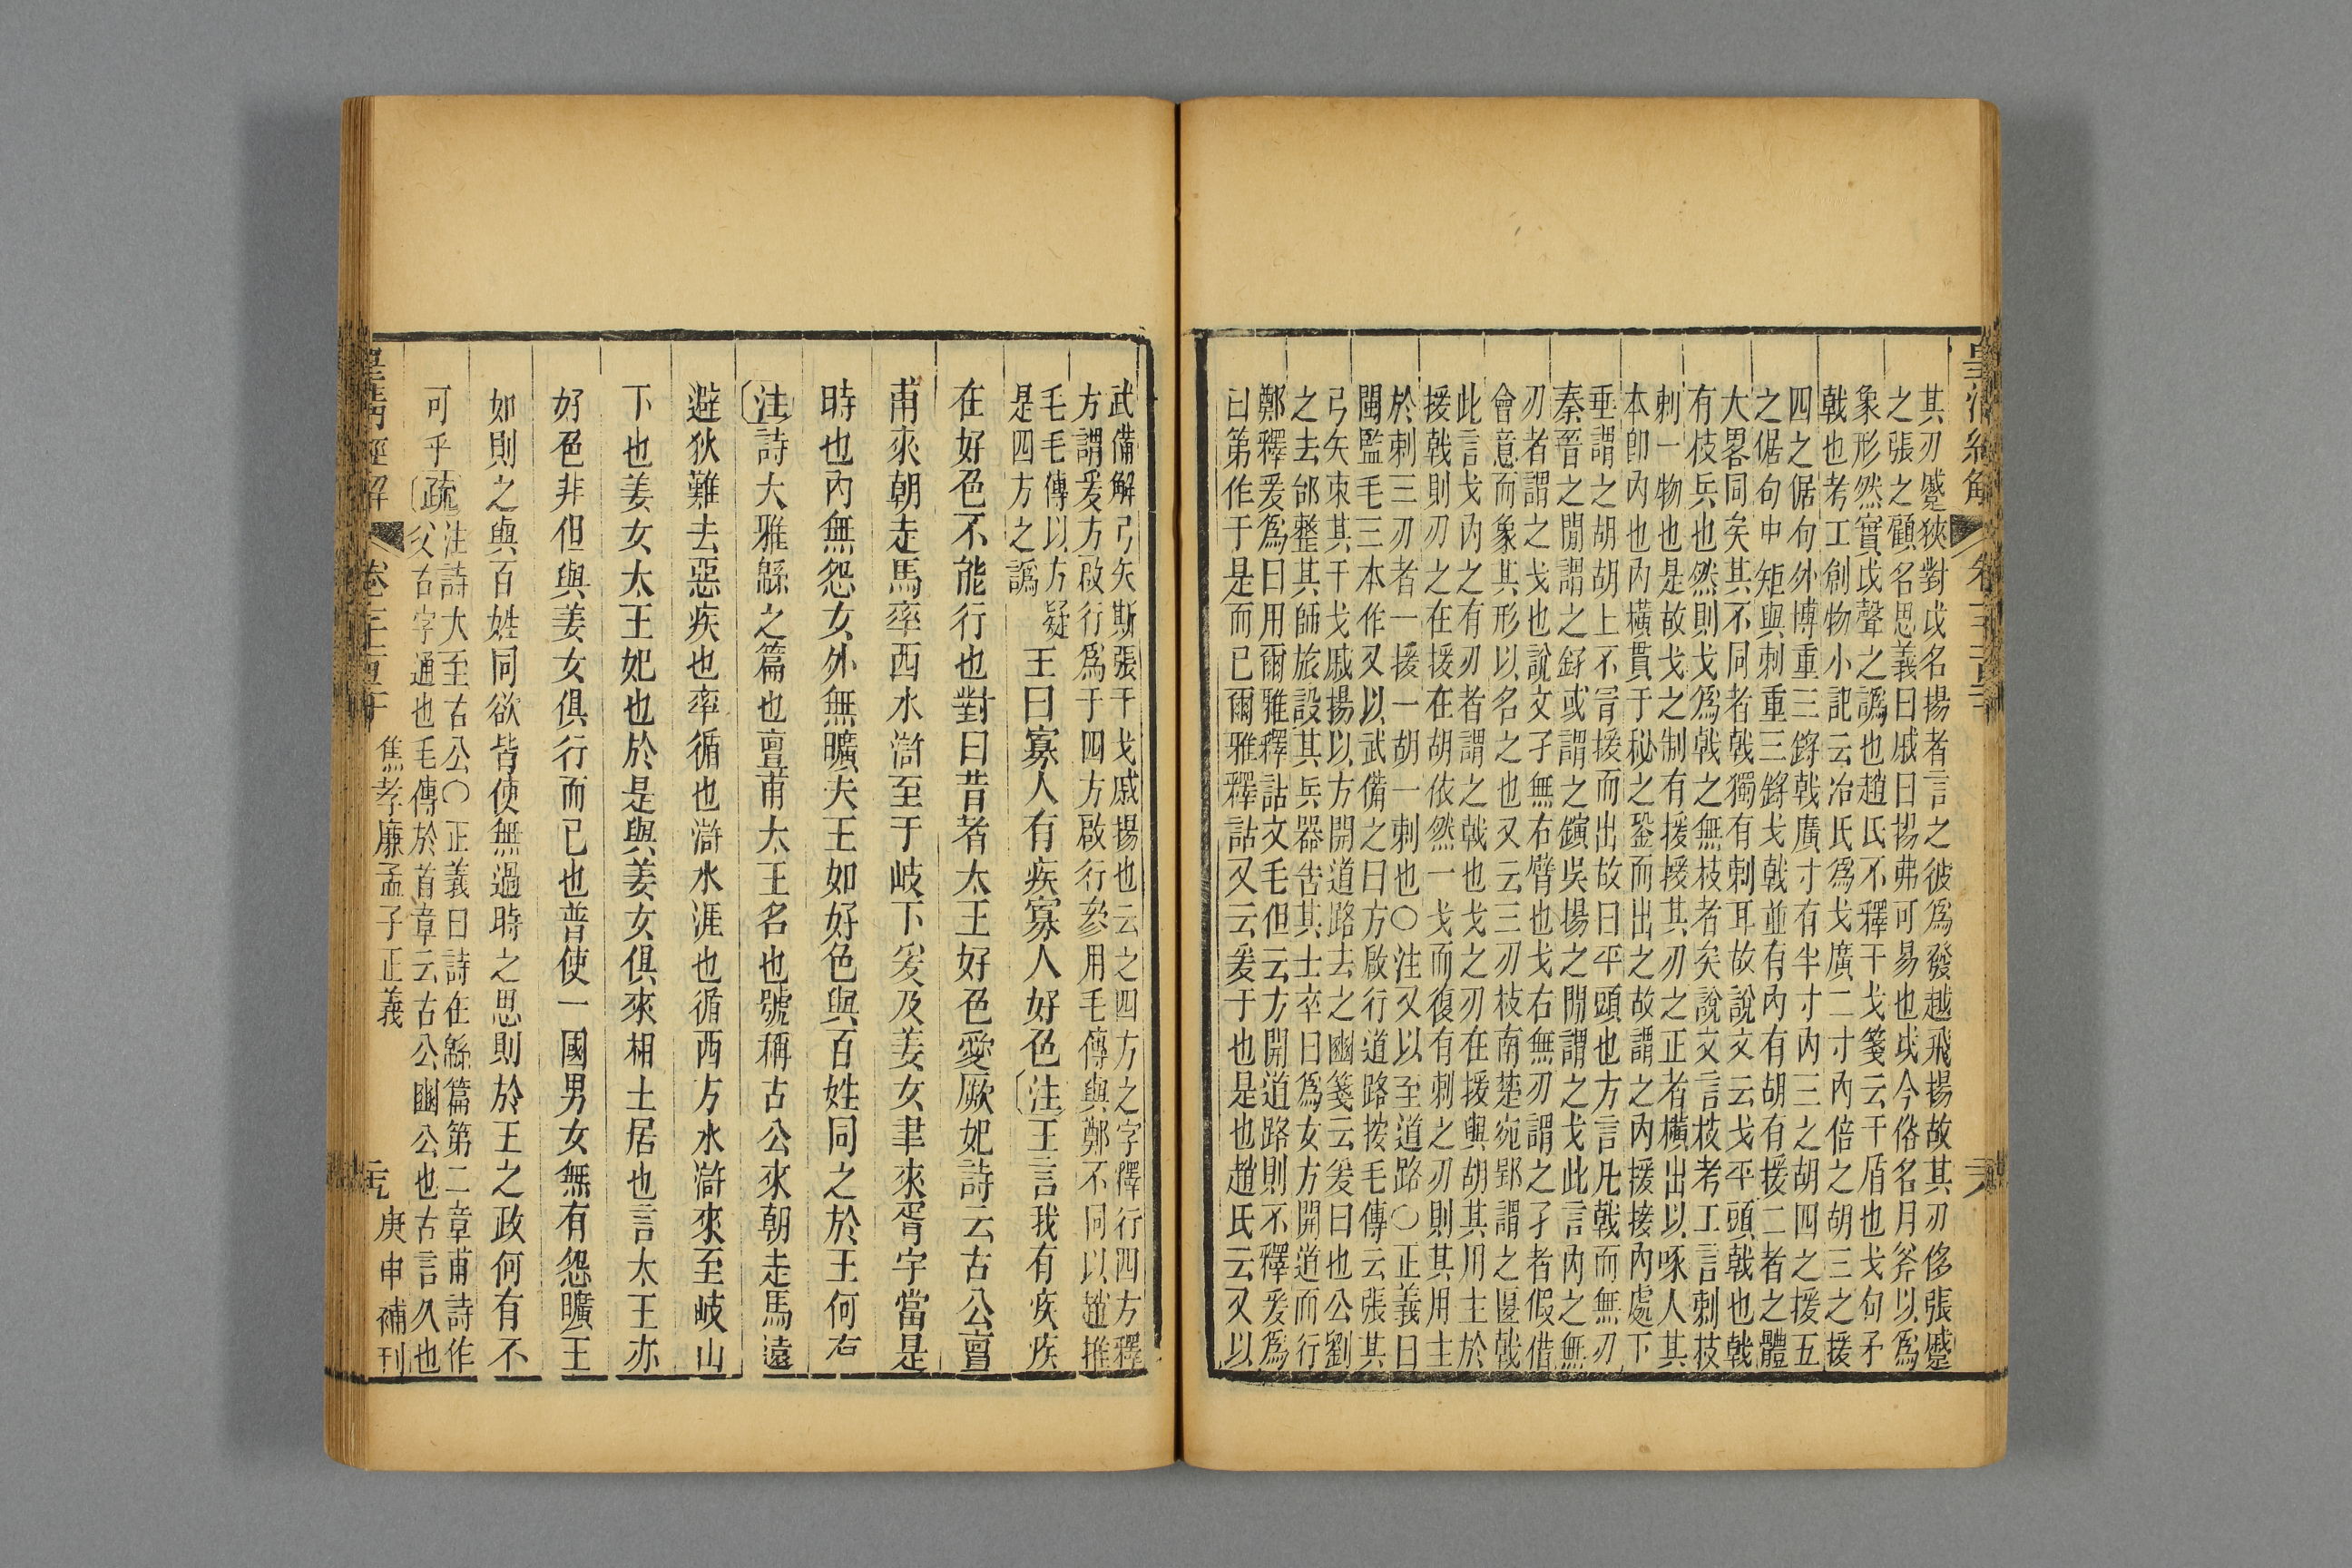 其刃蹙狹對戉名揚者言之彼爲發越飛揚故其刃侈張蹙
之張之顧名思義曰戚曰揚弗可易也戉今俗名月斧以爲
象形然實戉聲之譌也趙氏不釋干戈箋云干盾也戈句矛
戟也考工創物小記云冶氏爲戈廣二寸內倍之胡三之援
四之倨句外博重三鋝戟廣寸有半寸內三之胡四之援五
之倨句中矩與刺重三鋝戈戟並有內有胡有援二者之體
大畧同矣其不同者戟獨有刺耳故說文云戈平頭戟也戟
有枝兵也然則戈爲戟之無枝者矣說文言枝考工言刺枝
刺一物也是故戈之制有援援其刃之正者橫出以啄人其
本卽內也內橫貫于柲之銎而出之故謂之內援接內處下
垂謂之胡胡上不冐援而出故曰平頭也方言凡戟而無刃
秦晉之閒謂之釨或謂之鏔吳揚之閒謂之戈此言內之無
刃者謂之戈也說文孑無右臂也戈右無刃謂之孑者假借
會意而象其形以名之也又云三刃枝南楚宛郢謂之匽戟
此言戈內之有刃者謂之戟也戈之刃在援與胡其用主於
援戟則刃之在援在胡依然一戈而復有刺之刃則其用主
於刺三刃者一援一胡一刺也○注又以至道路○正義曰
閩監毛三本作又以武備之曰方啟行道路按毛傳云張其
弓矢束其干戈戚揚以方開道路去之豳箋云爰曰也公劉
之去邰整其師旅設其兵器告其士卒曰爲女方開道而行
鄭釋爰爲曰用爾雅釋詁文毛但云方開道路則不釋爰爲
曰第作于是而已爾雅釋詁又云爰于也是也趙氏云又以
武備解弓矢斯張干戈戚揚也云之四方之字釋行四方釋
方謂爰方啟行爲于四方啟行叅用毛傳與鄭不同以趙推
毛毛傳以方疑
是四方之譌
王曰寡人有疾寡人好色〔注〕王言我有疾疾
在好色不能行也對曰昔者太王好色愛厥妃詩云古公亶
甫來朝走馬率西水滸至于岐下爰及姜女聿來胥宇當是
時也內無怨女外無曠夫王如好色與百姓同之於王何右
〔注〕詩大雅緜之篇也亶甫太王名也號稱古公來朝走馬遠
避狄難去惡疾也率循也滸水涯也循西方水滸來至岐山
下也姜女太王妃也於是與姜女俱來相土居也言太王亦
好色非但與姜女俱行而已也普使一國男女無有怨曠王
如則之與百姓同欲皆使無過時之思則於王之政何有不
可乎〔疏〕注詩大至古公○正義曰詩在緜篇第二章甫詩作
父古字通也毛傳於首章云古公豳公也古言久也
皇清經解 焦孝廉孟子正義 庚申補刊